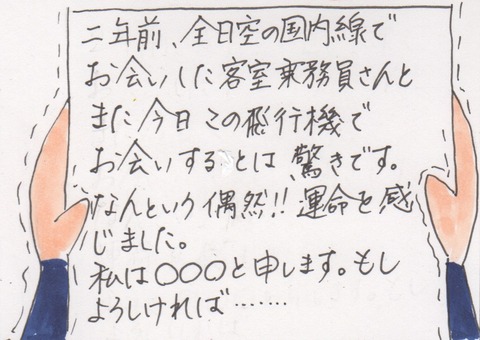 二年前、全日空の国内線で
お会いした客室乗務員さんと
また今日この飛行機で
お会いするとは驚きです。
なんという偶然!!運命を感
じました。
私は〇〇〇と申します。もし
よろしければ………